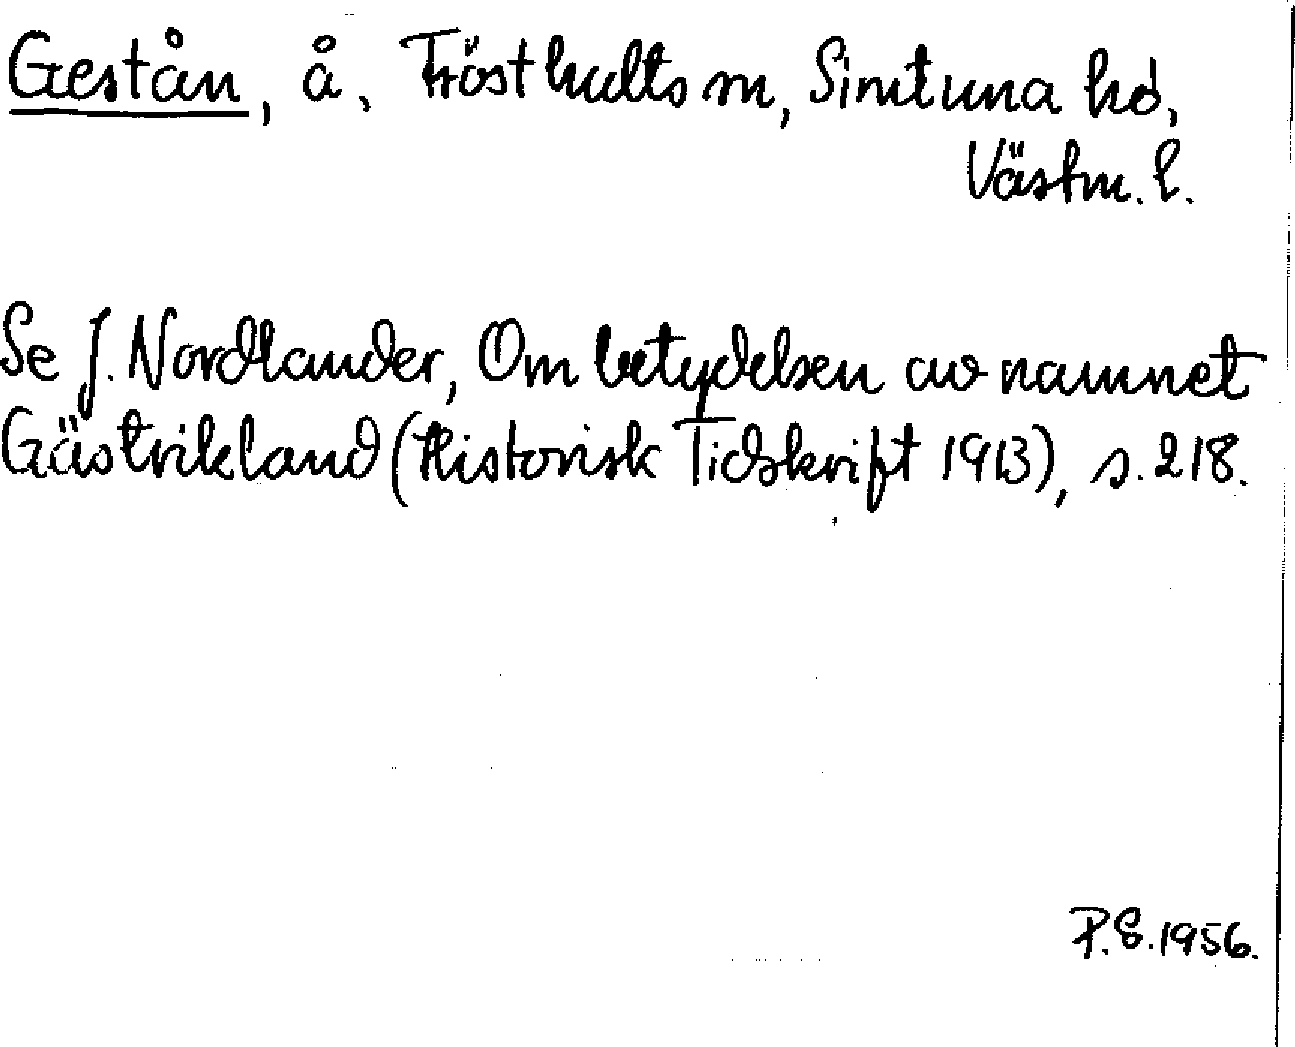 Gestån, å, Frösthults sn, Simtuna hd,
Västm. l.
Se J. Nordlander, Om betydelsen av namnet
Gästrikland (Historisk Tidskrift 1913), s. 218.
P.S. 1956.